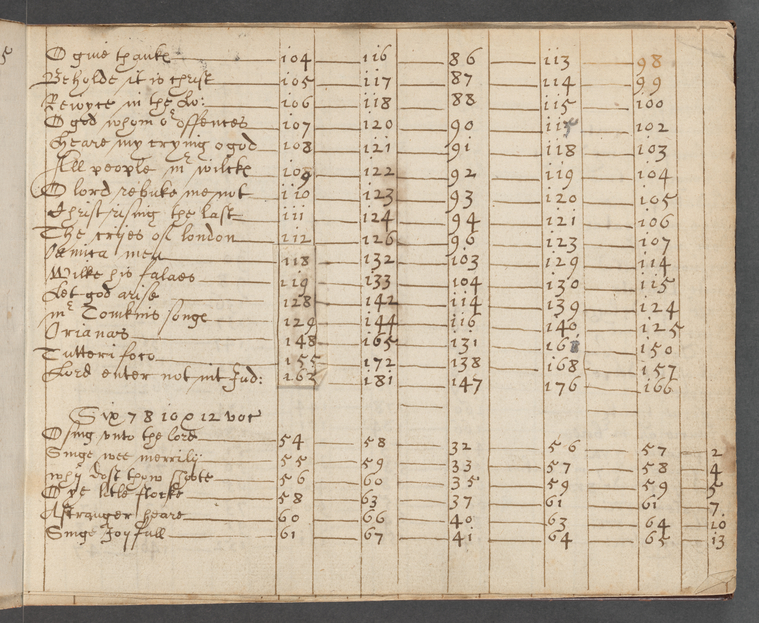 5
O giue thanks 104 116 86 113 98
Beholde it is christ 105 117 87 114 99
Reioyce in the Lo: 106 118 88 115 100
O god whom or offences 107 120 90 102
Heare my crying o god 108 121 91 118 103
All people mr wilcke 109 122 92 119 104
O lord rebuke me not 110 123 93 120 105
Christ rising the last 111 124 94 121 106
The cryes of london 112 126 96 123 107
mea 118 132 103 129 114
Wilke his falaes 119 133 104 130 115
Let god arise 128 142 114 139 124
mr Tomkins songe 129 144 116 140 125
Orianas 148 165 131 150
Tutteri foco 155 172 138 168 157
Lord enter not int Jud: 162 181 147 176 166
Six 7 8 10 & 12 voc
O sing vnto the lord 54 58 32 56 57 2
Singe wee merrily 55 59 33 57 58 4
why dost thow shote 56 60 35 59 59 5
O ye litle flocke 58 63 37 61 61 7
A stranger heare 60 66 40 63 64 10
Singe Joyfull 61 67 41 64 65 13